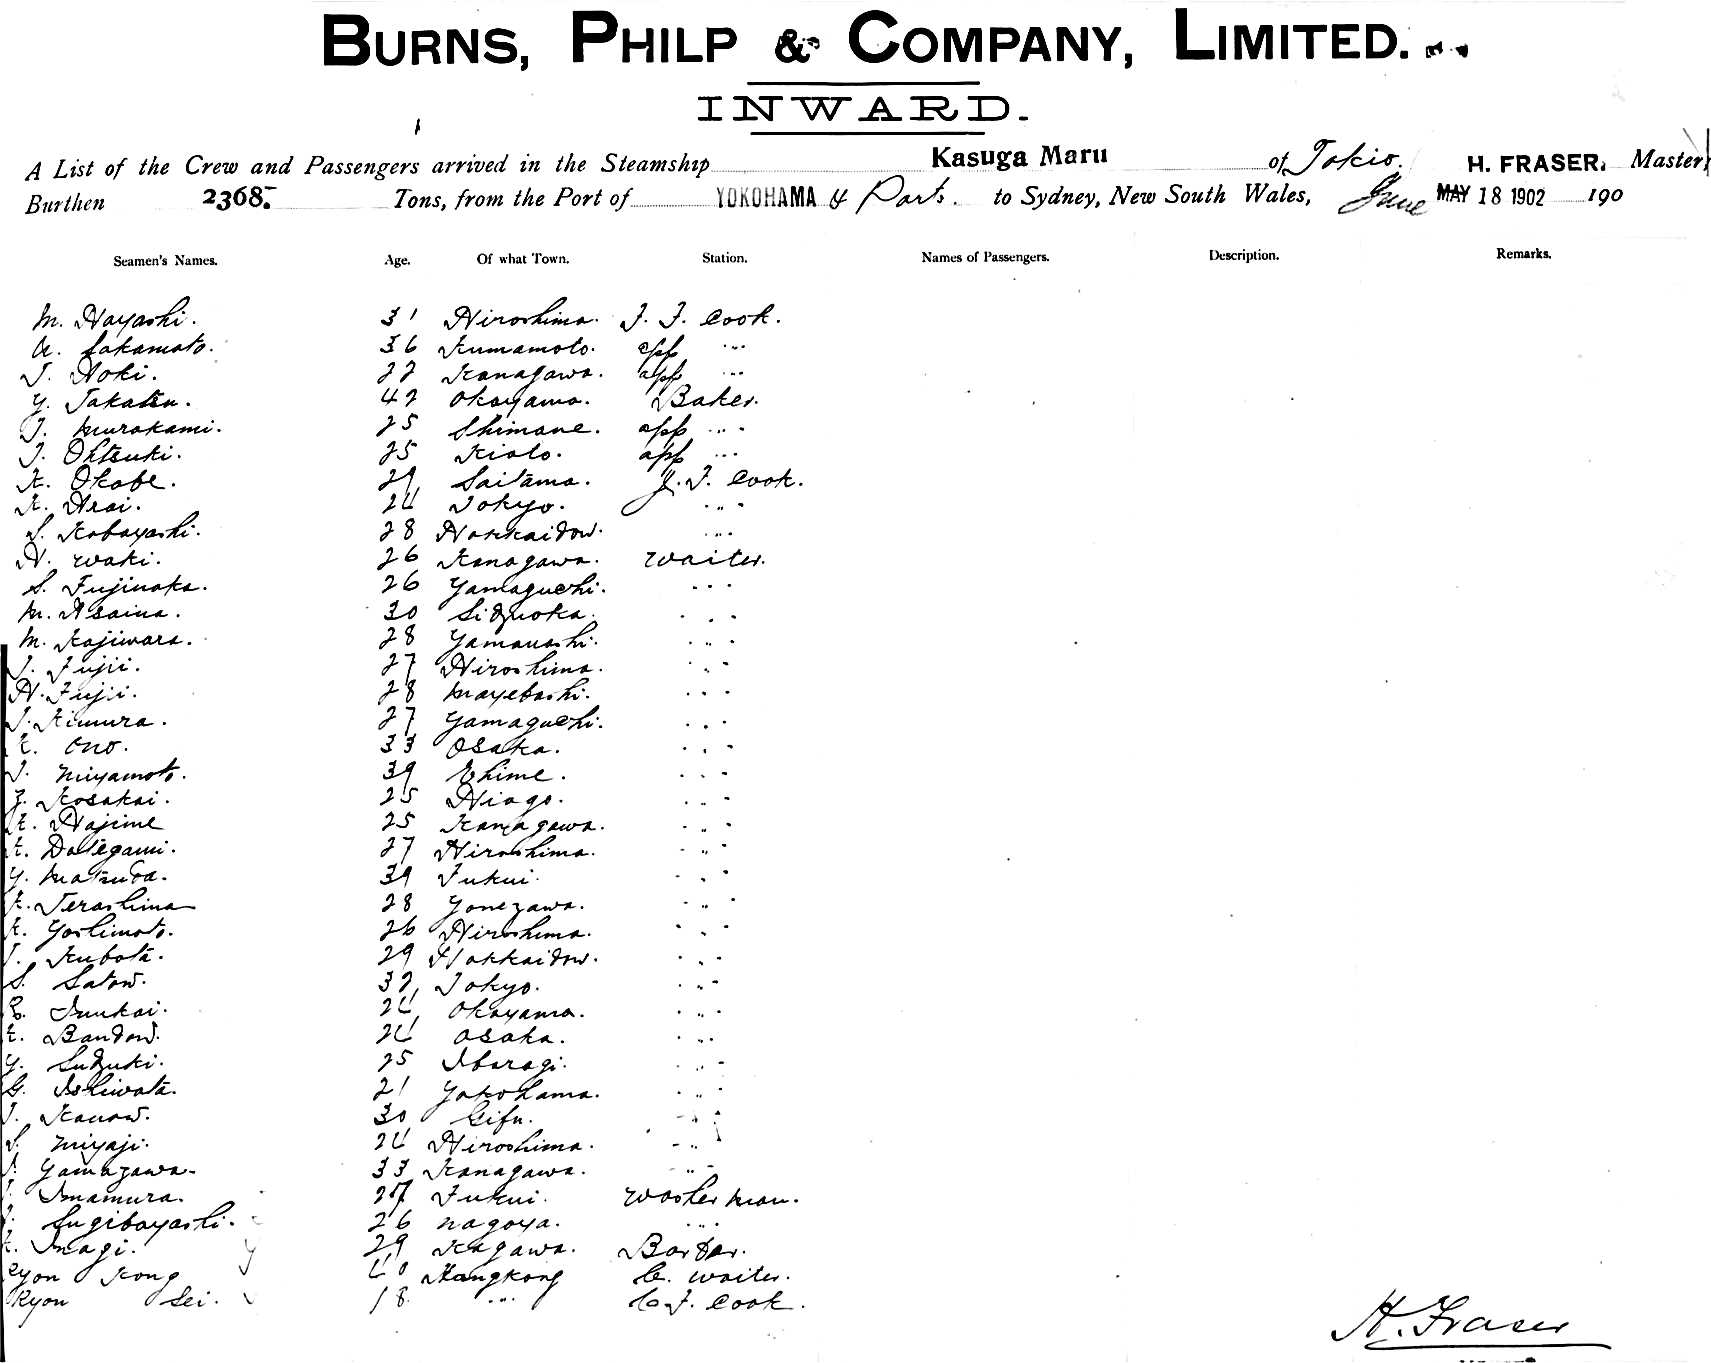 BURNS, PHILP & COMPANY, LIMITED.
INWARD.
A List of the Crew and Passengers arrived in the Steamship Kasuga Maru of Tokio. H. FRASER. Master,
Burthen 2368 Tons, from the Port of YOKOHAMA & Ports. to Sydney, New South Wales, June MAY 18 1902 190
Seamen's Names. Age. Of what Town. Station. Names of Passengers. Description. Remarks.
M. Hayashi. 31 Hiroshima. J. F. Cook.
A. Sakamoto. 36 Kumamoto. app "
T. Aoki. 22 Kanagawa. app "
Y. Takatsu. 42 Okayama. Baker.
T. Murakami. 25 Shimane. app "
T. Ohtsuki. 25 Kioto. app "
K. Okabe. 29 Saitama. J. F. Cook.
K. Arai. 24 Tokyo. "
S. Kobayashi. 28 Hokkaidow. "
H. Waki. 26 Kanagawa. Waiter.
S. Fujinaka. 26 Yamaguchi. "
M. Asaina. 30 Sidzuoka. "
M. Kajiwara. 28 Yamanashi. "
T. Fujii. 27 Hiroshima. "
H. Fuji. 28 Mayebashi. "
T. Kimura. 27 Yamaguchi. "
K. Ono. 33 Osaka. "
T. Miyamoto. 39 Ehime. "
Z. Kosakai. 25 Hiogo. "
K. Hajime 25 Kanagawa. "
K. Dategami. 27 Hiroshima. "
Y. Matsuda. 39 Fukui. "
K. Terashima 28 Yonezawa. "
K. Yoshimoto. 26 Hiroshima. "
T. Kubota. 29 Hokkaidow. "
S. Satow. 32 Tokyo. "
Inukai. 24 Okayama. "
K. Bandow. 24 Osaka. "
Y. Sudzuki. 25 Ibaragi. "
G. Ishiwata. 21 Yokohama. "
T. Kanow. 30 Gifu. "
S. Miyaji. 24 Hiroshima. "
Yamazawa. 33 Kanagawa. "
Imamura. 27 Fukui. Washerman.
Sugibayashi. 26 Nagoya. "
K. Inagi. 29 Kagawa. Barber.
Kong 40 Hangkong C. Waiter.
Kyon Sei. 18. " C. F. Cook.
H. Fraser